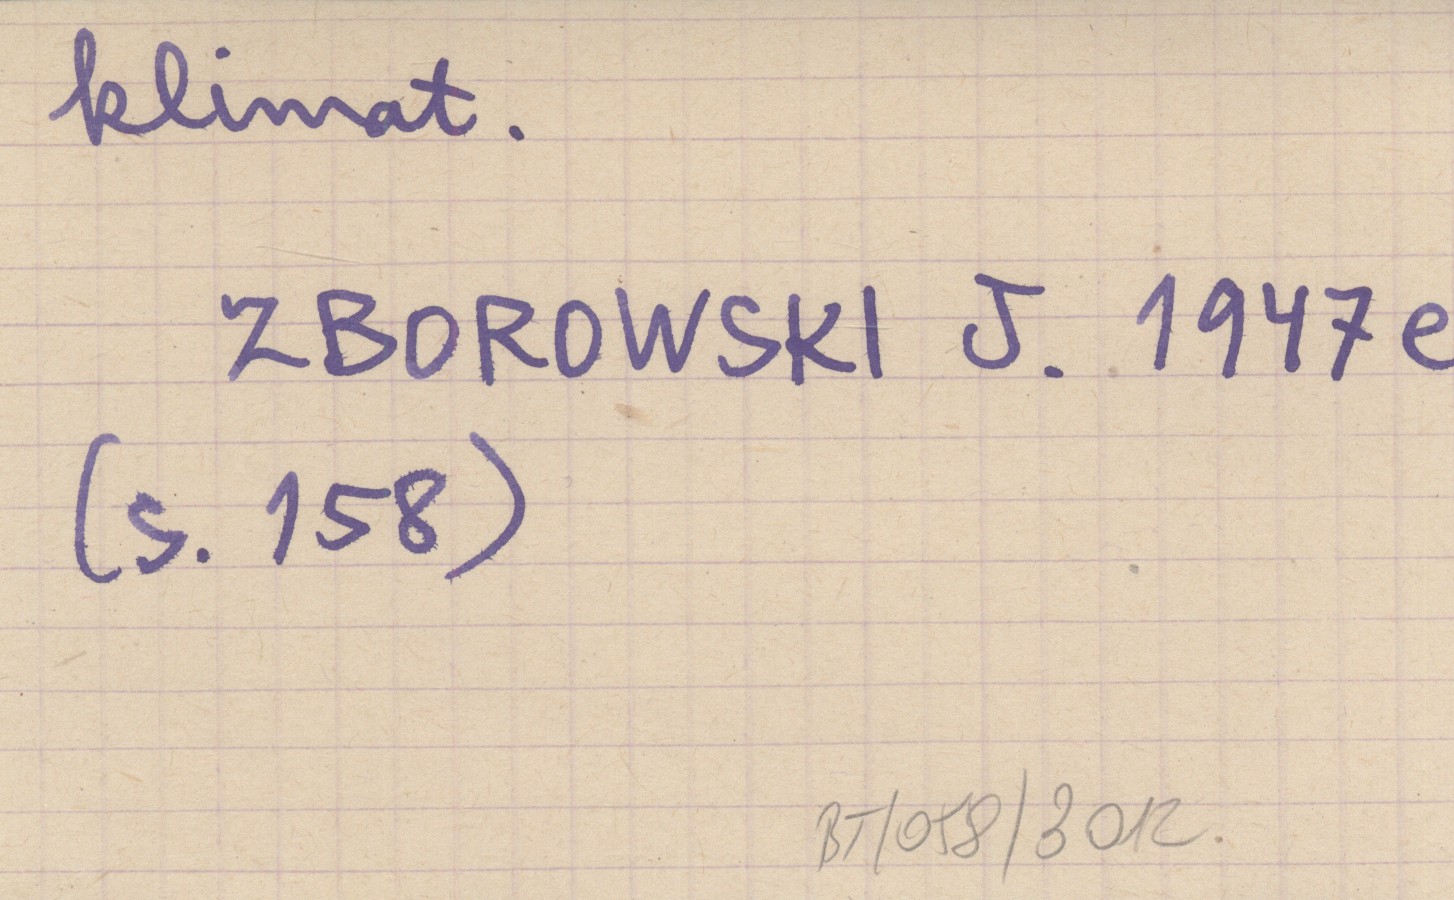 klimat.
ZBOROWSKI J. 1947e
(s. 158)
BT/058/3012.